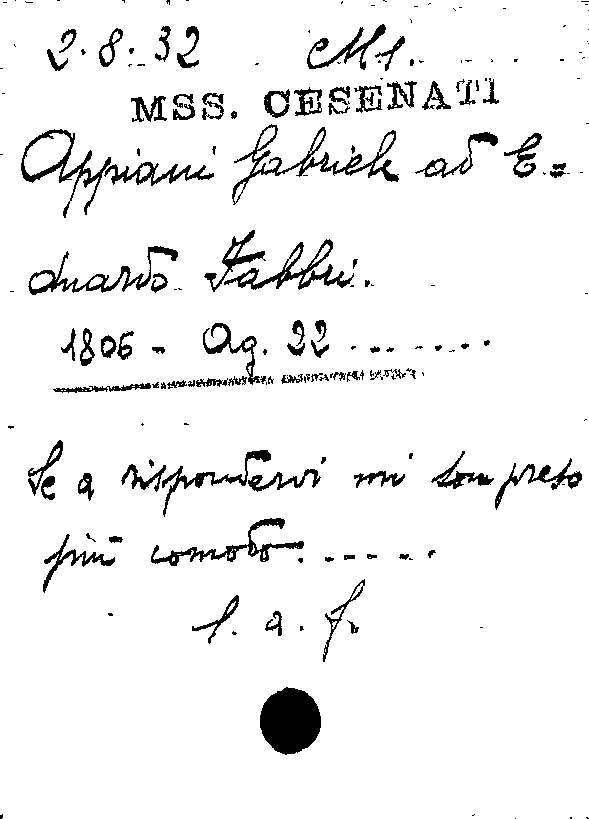 2.8.32 Ms.
MSS. CESENATI
Appiani Gabriele ad E=
duardo Fabbri.
1806 - Ag. 22 ........
Se a rispondervi mi son preso
più comodo. ......
l. a. f.